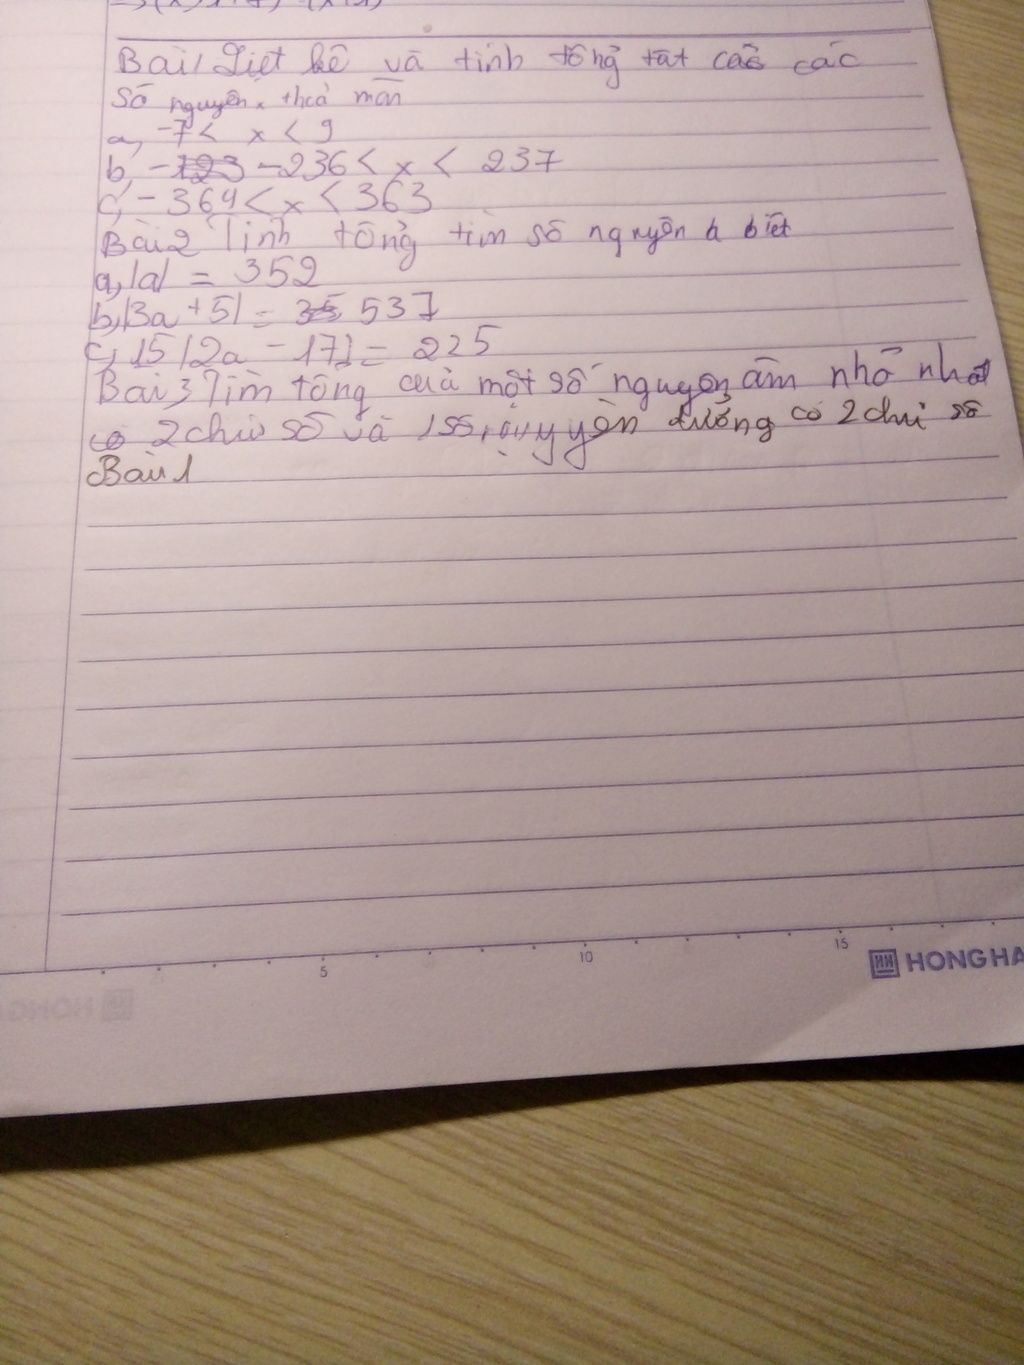 Bài 1 Liệt kê và tính tổng tất cả các
số nguyên x thoả mãn
a, -7 < x < 9
b, -123 -236 < x < 237
c, -364 < x < 363
Bài 2 Tính tổng tìm số nguyên a biết
a, |a| = 352
b, |3a + 5| = 35 537
c, 15 |2a - 17| = 225
Bài 3 Tìm tổng của một số nguyên âm nhỏ nhất
có 2 chữ số và 1 số nguyên dương có 2 chữ số
Bài 1
5 10 15
HONG HA